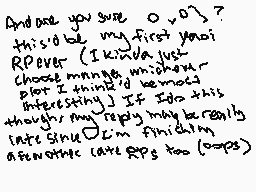 And are you sure O_vO) ?
this'd be my first yaoi
RP ever (I kinda just
choose manga, whichever
plot I think'd be most
interesting) If I do this
though, my reply may be really
late since I'm finishin
a few other late RPs too (oops)